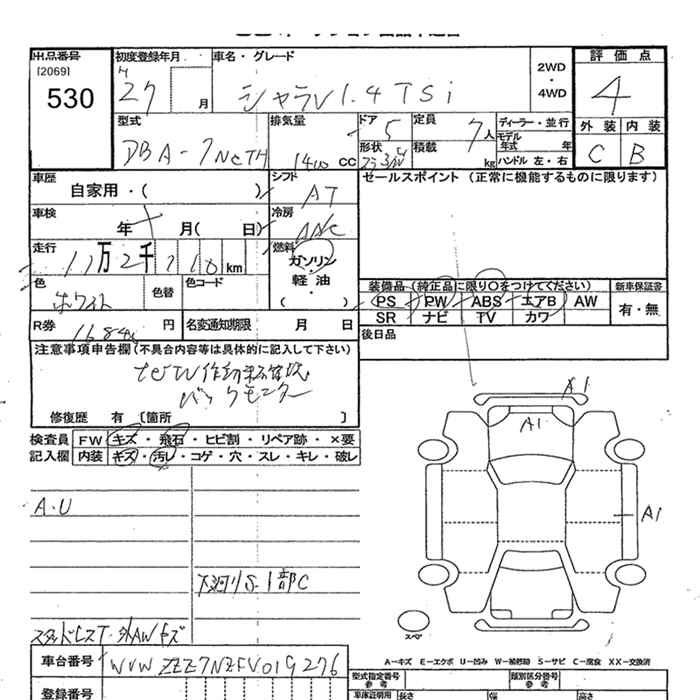 出品番号
[2069]
530
初度登録年月
27
月
車名・グレード
シャラン 1.4 TSi
2WD
・
4WD
評価点
4
外装 内装
C B
型式
DBA-7NCTH
排気量
1400 CC
ドア 5
形状
定員 7人
積載 kg
ディーラー・並行
モデル年式 年
ハンドル 左・右
車歴
自家用・( )
シフト
AT
セールスポイント (正常に機能するものに限ります)
車検
年 月( 日)
冷房
走行
万 2千 km
燃料
ガソリン
・
軽油
・
色
ホワイト
色替
色コード
装備品 (純正品に限り○をつけてください)
PS PW ABS エアB AW
SR ナビ TV カワ
新車保証書
有・無
R券
円
名変通知期限 月 日
後日品
注意事項申告欄 (不具合内容等は具体的に記入して下さい)
バックモニター
修復歴 有 [箇所 ]
検査員
記入欄
FW キズ・飛石・ヒビ割・リペア跡・×要
内装 キズ・汚レ・コゲ・穴・スレ・キレ・破レ
A1
A1
A1
A・U
下廻りS・1部C
スペア
A-キズ E-エクボ U-凹み W-補修跡 S-サビ C-腐食 XX-交換済
車台番号
WVWZZZ7NZFV019276
登録番号
型式指定番号
参考
類別区分番号
参考
車庫証明用
長さ
幅
高さ